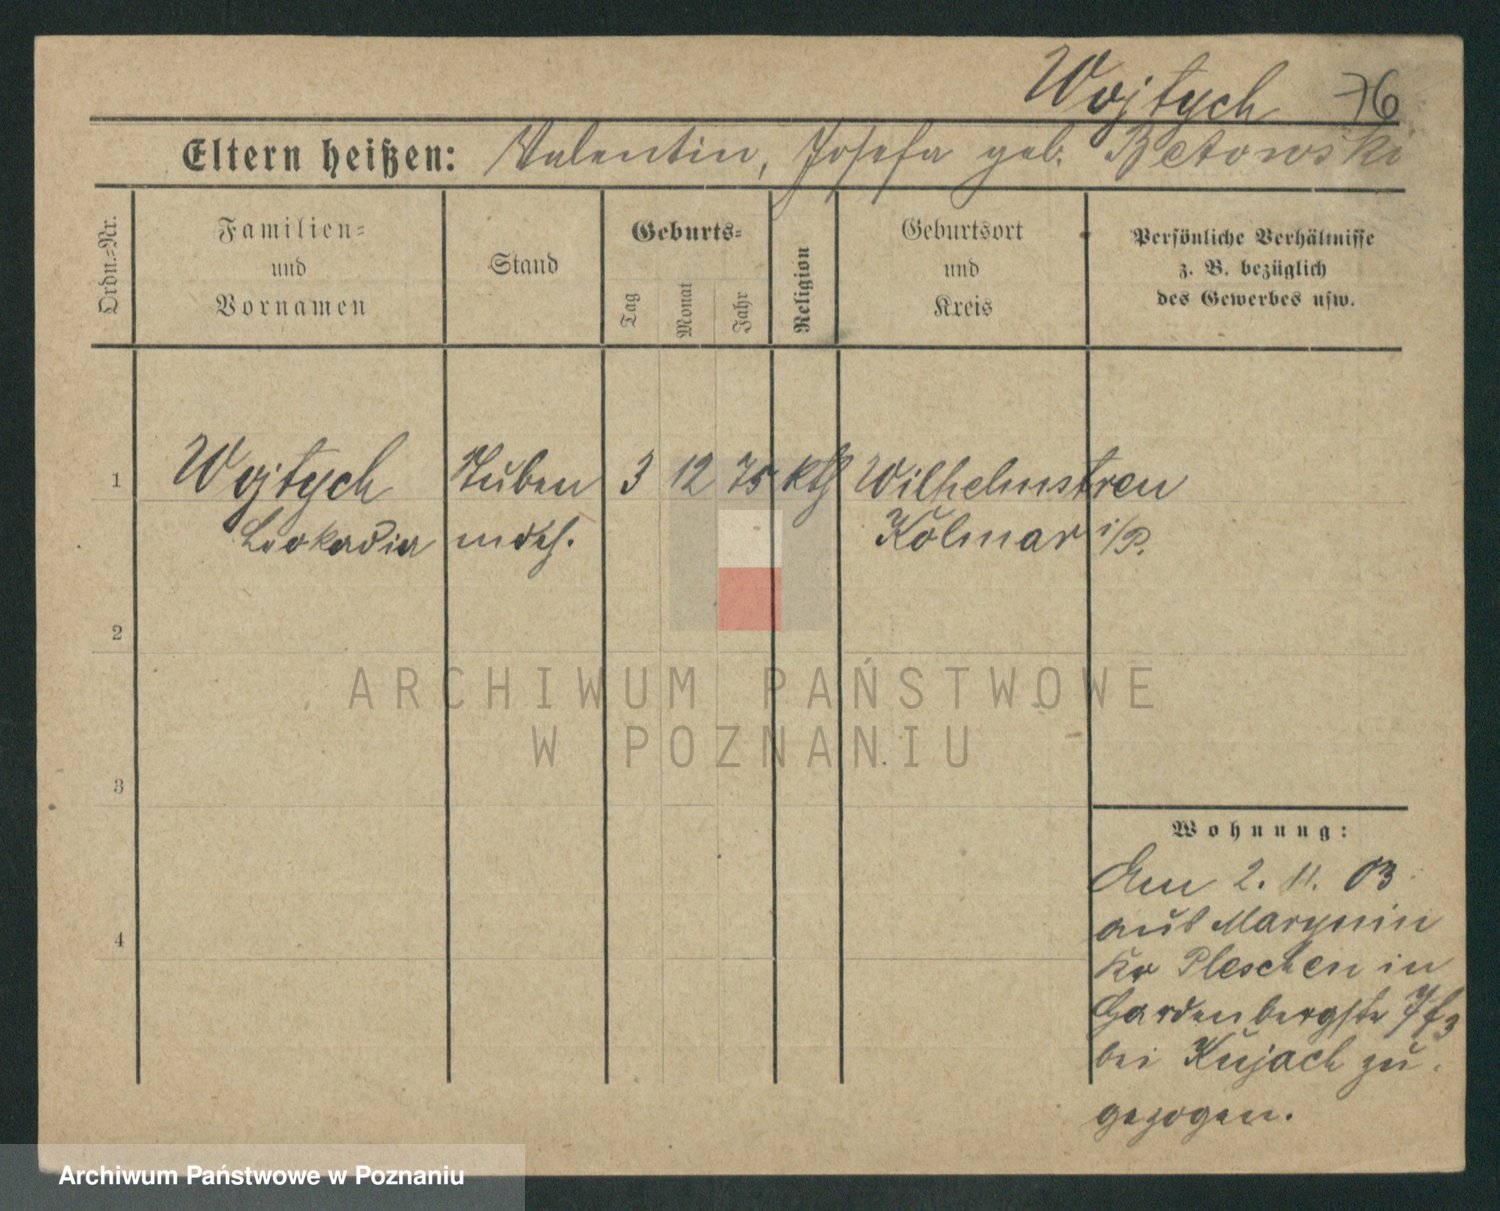 Wojtych 76
Eltern heißen: Valentin, Josefa geb. Betowski
Ordn.-Nr.
Familien-
und
Vornamen
Stand
Geburts-
Tag
Monat
Jahr
Religion
Geburtsort
und
Kreis
Persönliche Verhältnisse
z. B. bezüglich
des Gewerbes usw.
1 Wojtych Stuben 3 12 75 kth Wilhelmstreu
Leokadia mdch. Kolmar i/P.
2
3
4
Wohnung:
Am 2. 11. 03
aus Marynin
Kr Pleschen in
bei Kujach zu-
gezogen.
ARCHIWUM PAŃSTWOWE
W POZNANIU
Archiwum Państwowe w Poznaniu